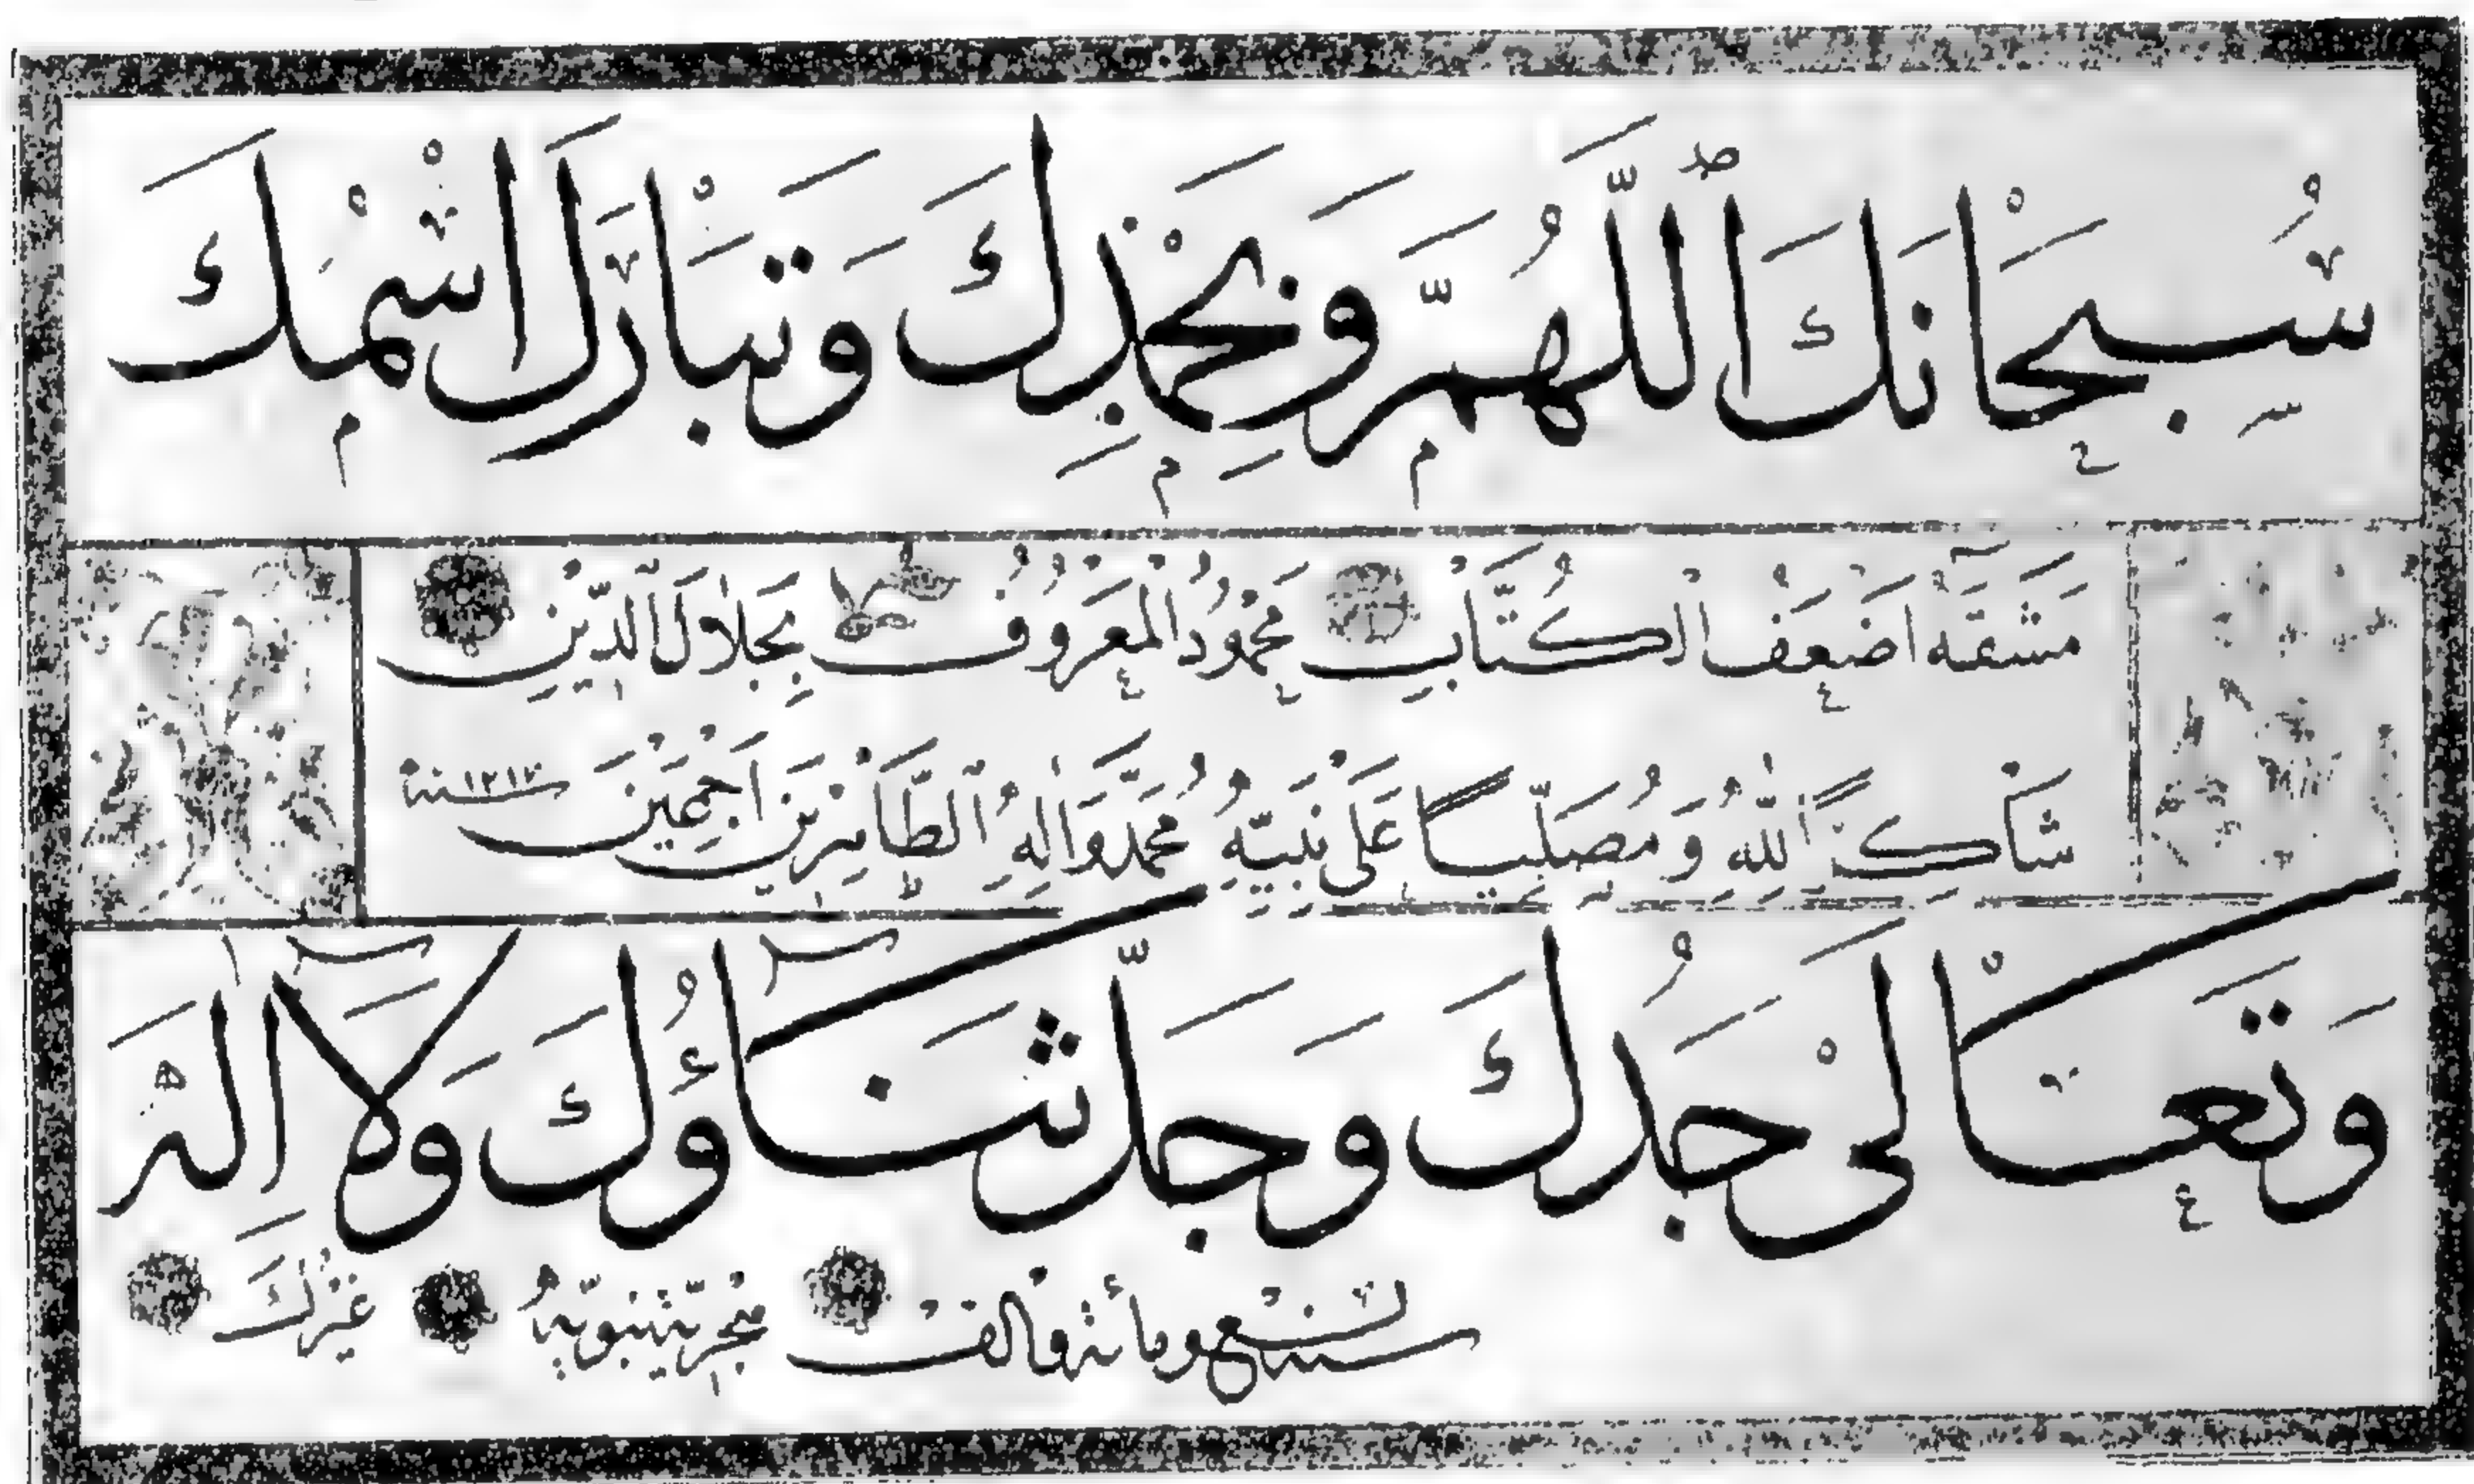 سُبْحَانَكَ ٱللَّهُمَّ وَبِحَمْدِكَ وَتَبَارَكَ اسْمُكَ
مَشَقَهُ اَضْعَفُ الْكُتَّابِ مَحْمُودُ الْمَعْرُوفُ بِجَلَالِ الدِّينِ
شَاكِرًا لِلّٰهِ وَمُصَلِّيًا عَلَى نَبِيِّهِ مُحَمَّدٍ وَاٰلِهِ الطَّاهِرِينَ اَجْمَعِينَ سنة ١٢١٧
وَتَعَالَى جَدُّكَ وَجَلَّ ثَنَاؤُكَ وَلَا اِلٰهَ
غَيْرُكَ
سنة تسع ومائة والف هجرية نبوية